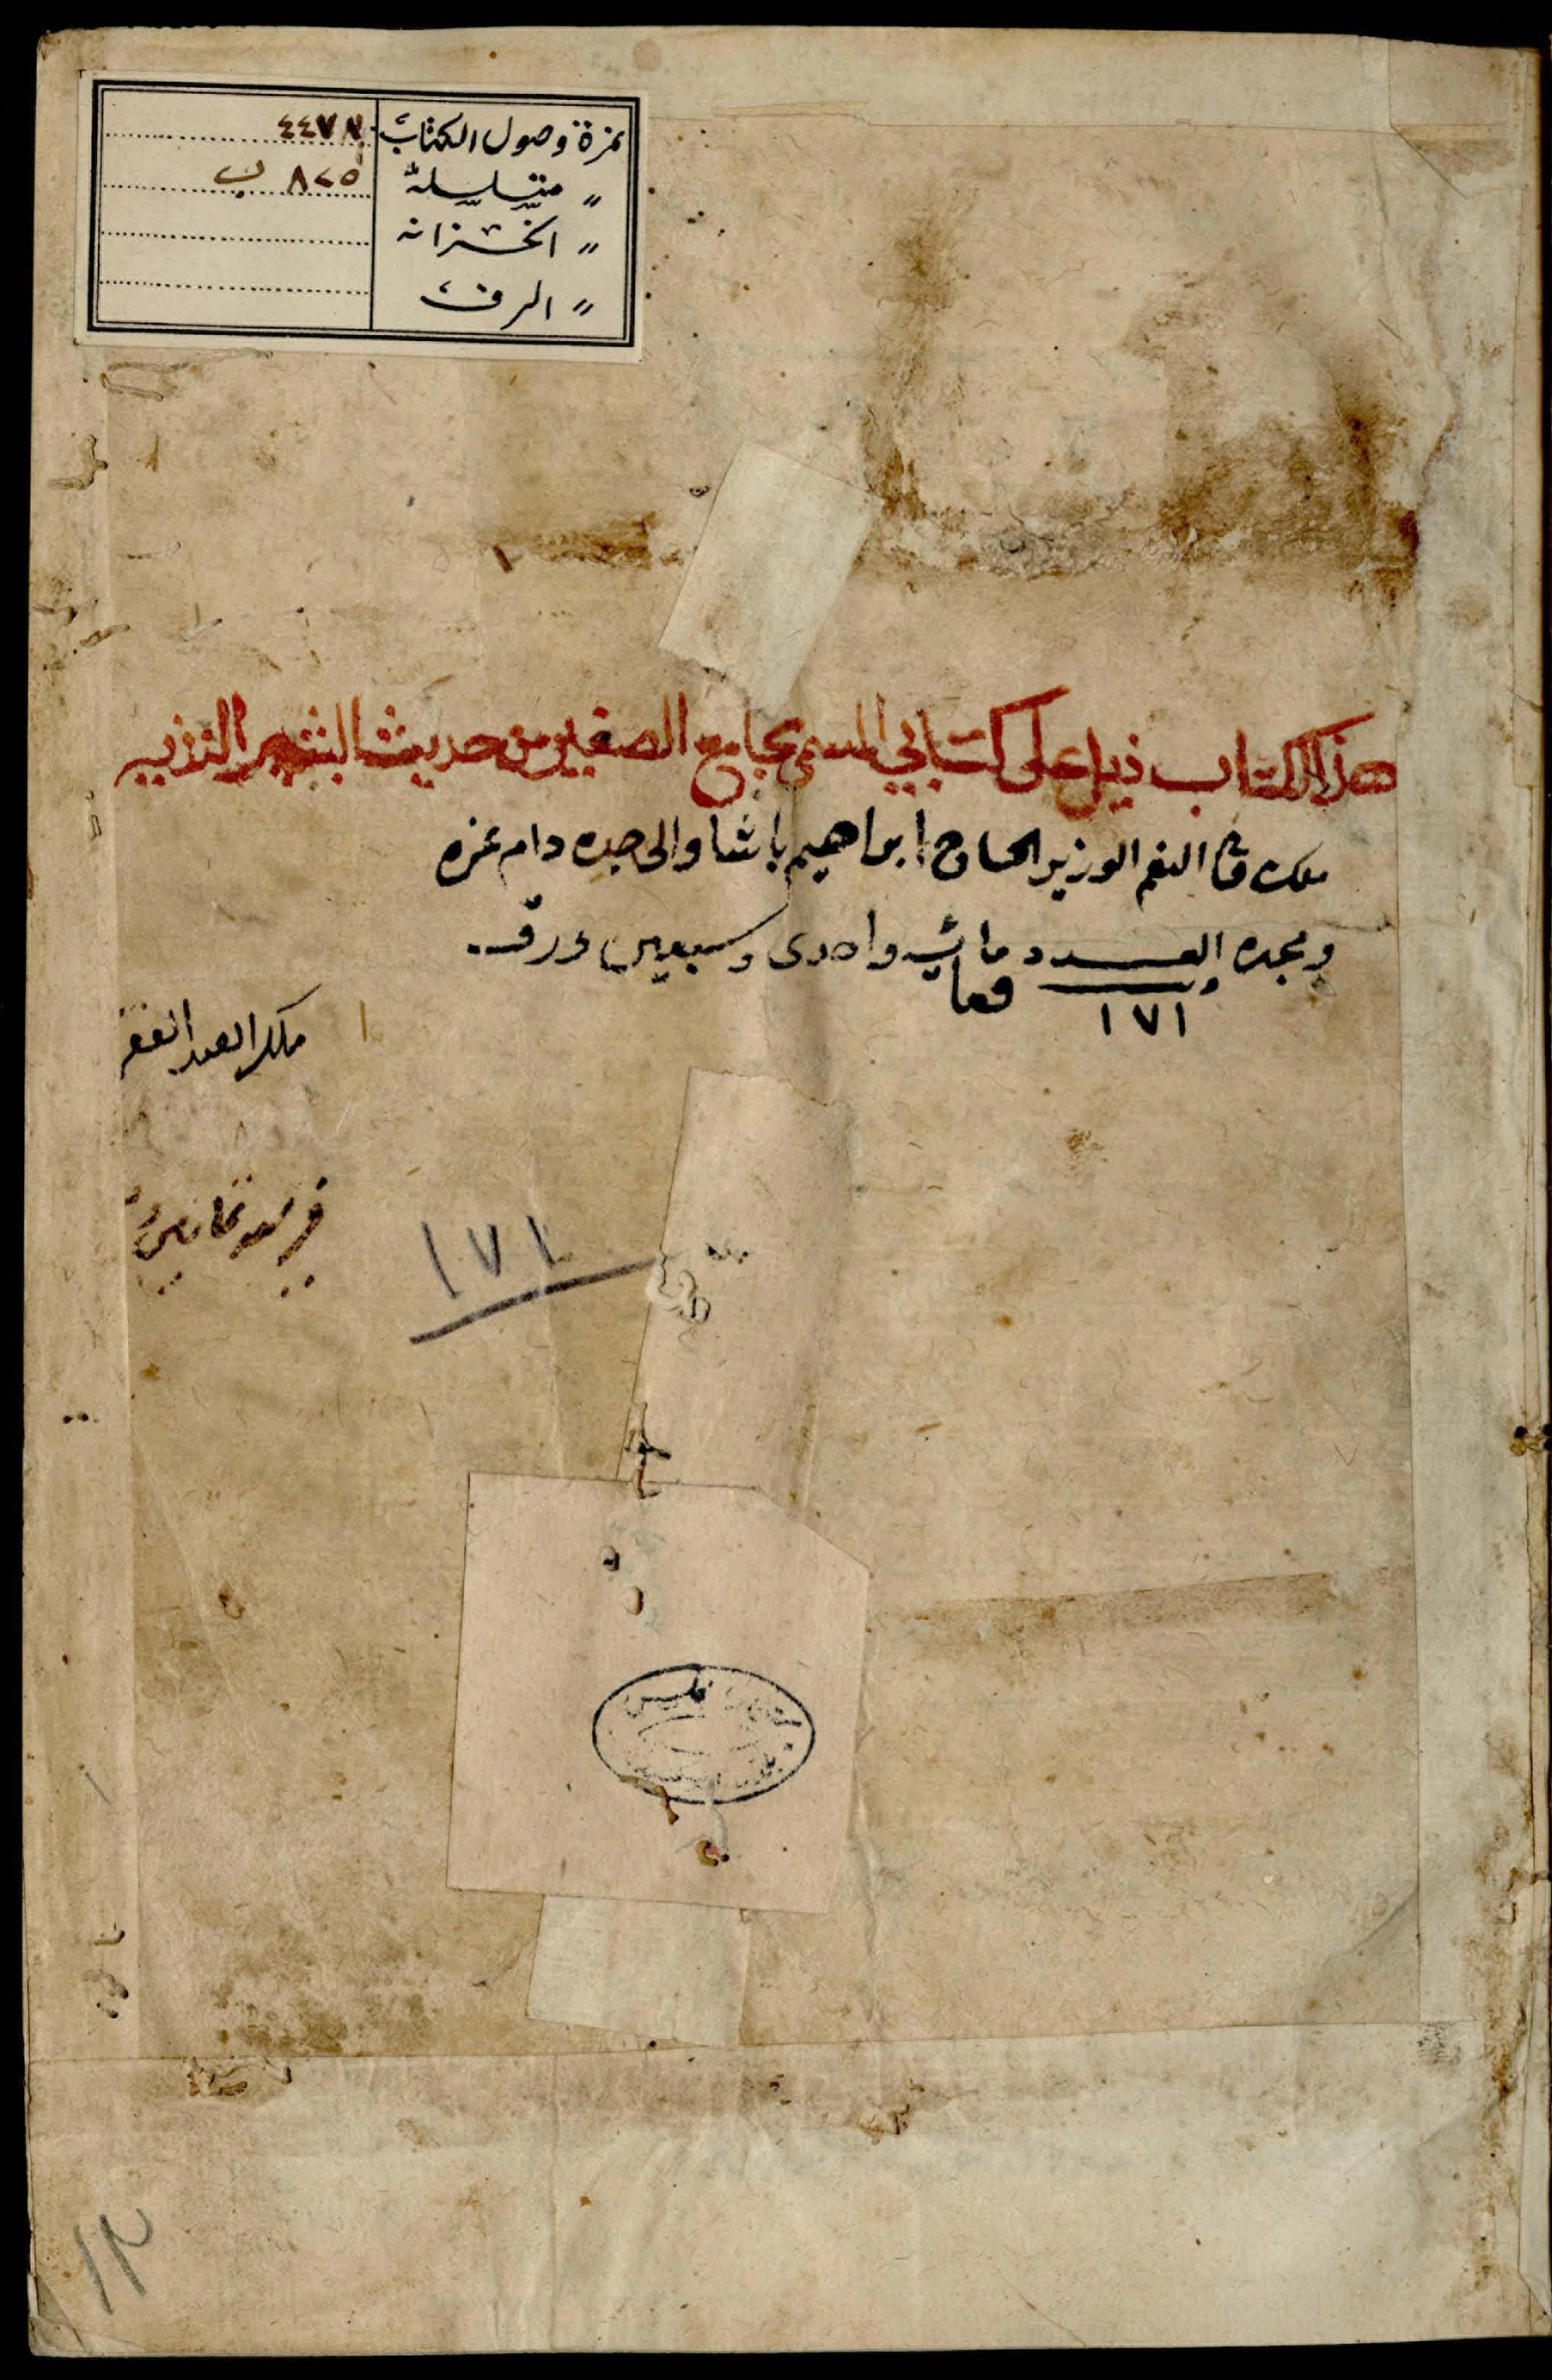 نمرة وصول الكتاب ٤٤٧٨
〃 متسلسلة ٨٢٥ ب
〃 الخزانة
〃 الرف
هذا الكتاب ذيل على كتابي المسمى بجامع الصغير من حديث البشير النذير
ملك ولي النعم الوزير الحاج ابراهيم باشا والى جده دام عزه
ومجده العدد مائة واحدى وسبعين ورقه
١٧١ فقط
ملك العبد الفقير
١٧١